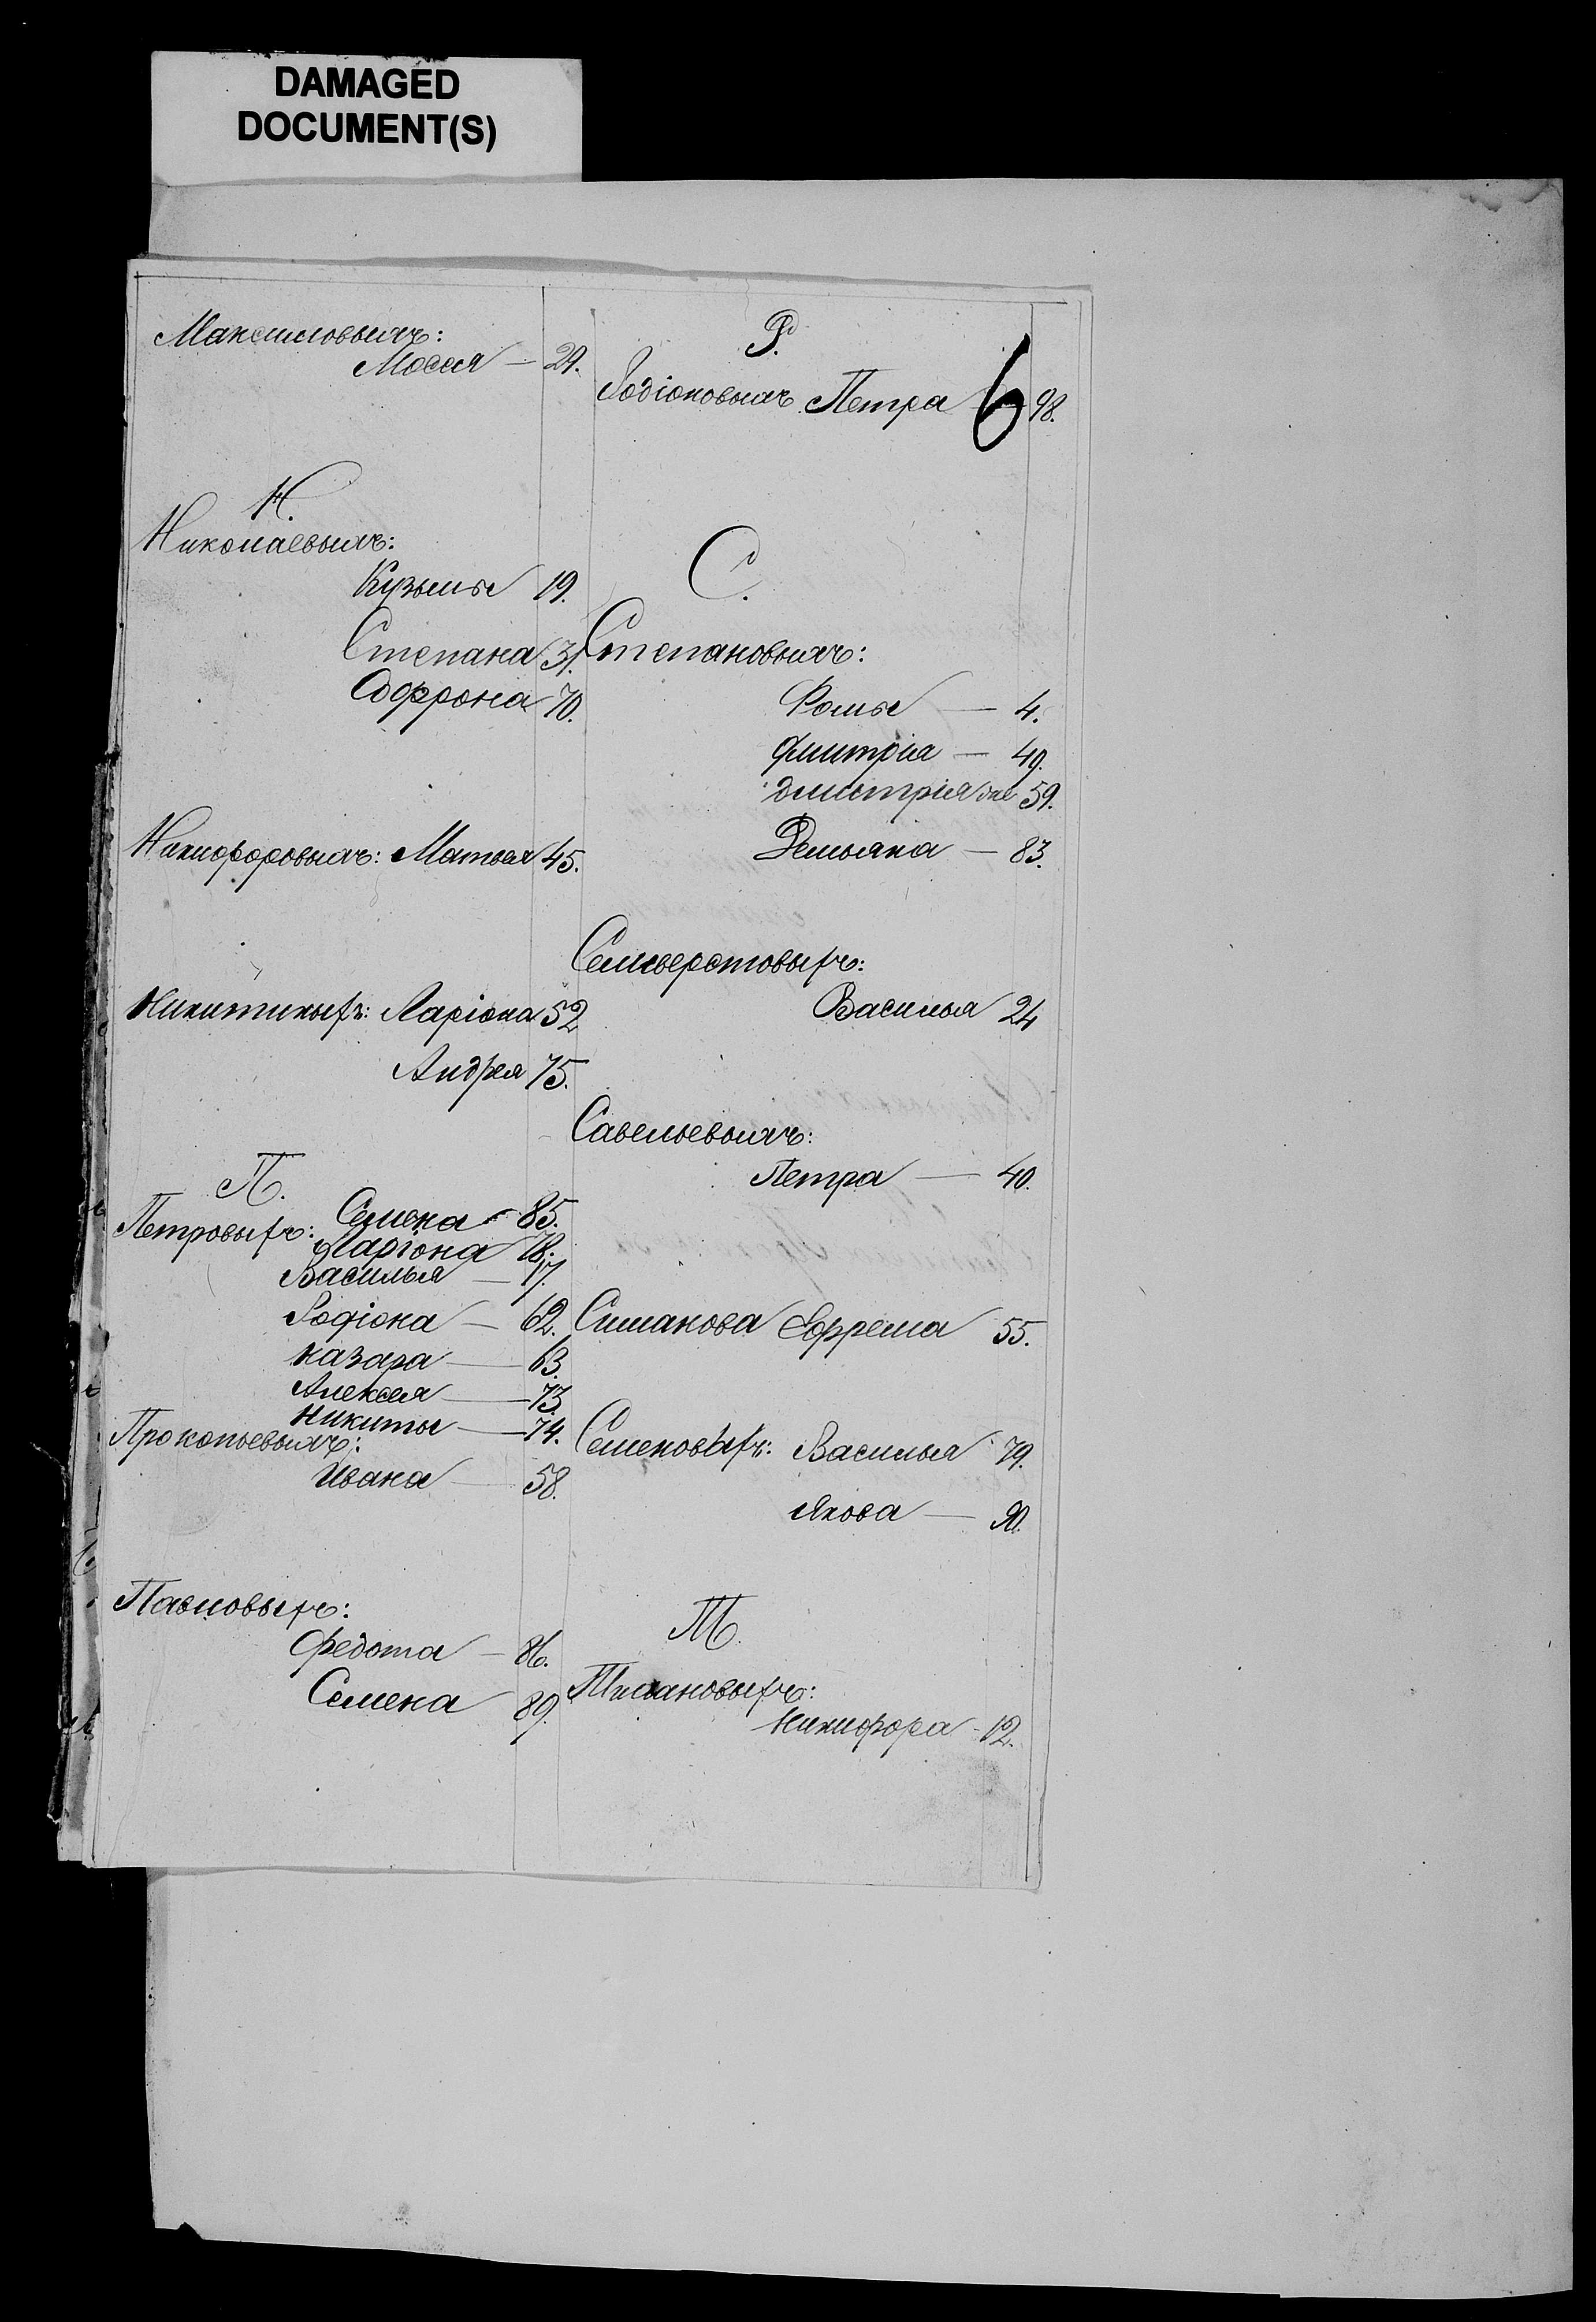 DAMAGED
DOCUMENT(S)
Максимовыхъ:
Мосея — 29.
Н.
Николаевыхъ:
Кузьмы 19.
Степана 31.
Софрона 70.
Никифоровыхъ: Матвея 45.
Никитиныхъ: Ларіона 52
Андрея 75.
П.
Петровыхъ: Семена - 85.
Ларіона 78.
Василья — 17.
Родіона — 62.
Назара — 63.
Алексея — 73.
Никиты — 74.
Прокопьевыхъ:
Ивана — 58.
Павловыхъ:
Федота — 86.
Семена 89.
Р.
Родіоновыхъ Петра 6 98.
С.
Степановыхъ:
Фомы — 4.
Дмитрія — 49.
Дмитрія 59.
Демьяна — 83.
Селиверстовыхъ:
Василья 24
Савельевыхъ:
Петра — 40.
Симанова Ефрема 55.
Семеновыхъ: Василья 79.
Якова — 90.
Т.
Никифора - 12.